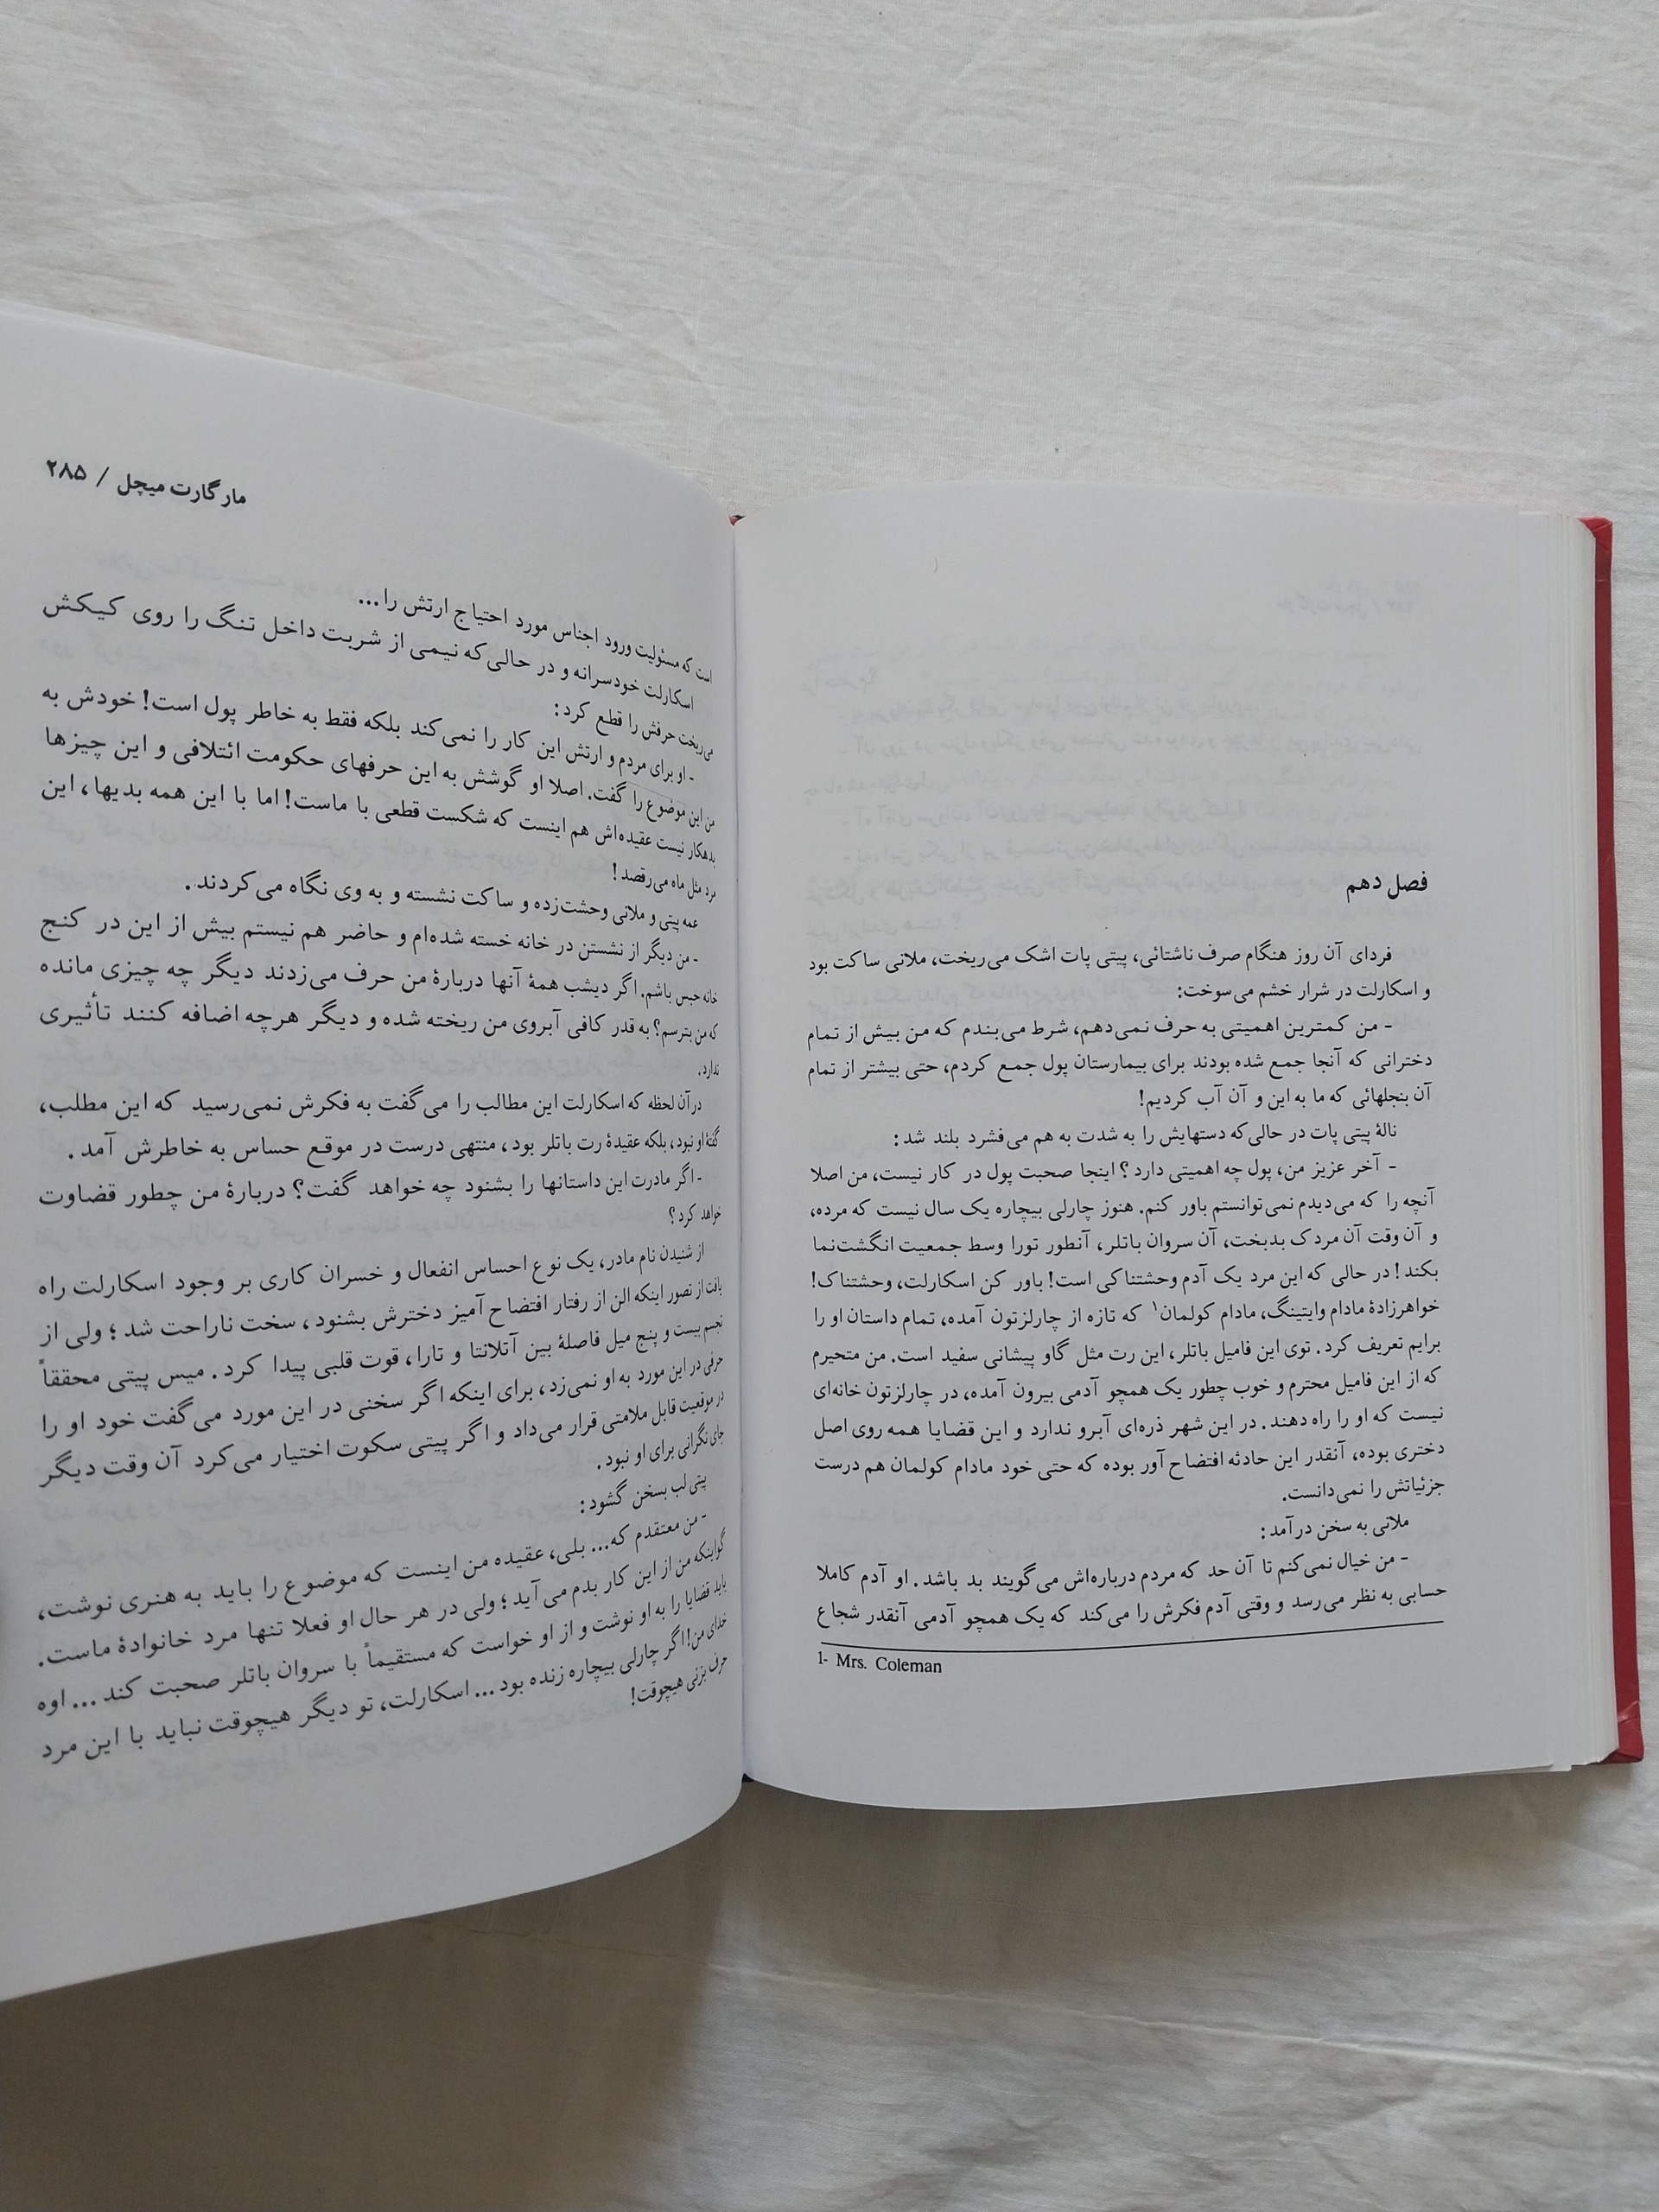 فصل دهم
فردای آن روز هنگام صرف ناشتائی، پیتی پات اشک می‌ریخت، ملانی ساکت بود
و اسکارلت در شرار خشم می‌سوخت:
- من کمترین اهمیتی به حرف نمی‌دهم، شرط می‌بندم که من بیش از تمام
دخترانی که آنجا جمع شده بودند برای بیمارستان پول جمع کردم، حتی بیشتر از تمام
آن بنجلهائی که ما به این و آن آب کردیم!
نالهٔ پیتی پات در حالی‌که دستهایش را به شدت به هم می‌فشرد بلند شد:
- آخر عزیز من، پول چه اهمیتی دارد؟ اینجا صحبت پول در کار نیست، من اصلا
آنچه را که می‌دیدم نمی‌توانستم باور کنم. هنوز چارلی بیچاره یک سال نیست که مرده،
و آن وقت آن مردک بدبخت، آن سروان باتلر، آنطور تورا وسط جمعیت انگشت‌نما
بکند! در حالی که این مرد یک آدم وحشتناکی است! باور کن اسکارلت، وحشتناک!
خواهرزادهٔ مادام وایتینگ، مادام کولمان۱ که تازه از چارلزتون آمده، تمام داستان او را
برایم تعریف کرد. توی این فامیل باتلر، این رت مثل گاو پیشانی سفید است. من متحیرم
که از این فامیل محترم و خوب چطور یک همچو آدمی بیرون آمده، در چارلزتون خانه‌ای
نیست که او را راه دهند. در این شهر ذره‌ای آبرو ندارد و این قضایا همه روی اصل
دختری بوده، آنقدر این حادثه افتضاح آور بوده که حتی خود مادام کولمان هم درست
جزئیاتش را نمی‌دانست.
ملانی به سخن درآمد:
- من خیال نمی‌کنم تا آن حد که مردم درباره‌اش می‌گویند بد باشد. او آدم کاملا
حسابی به نظر می‌رسد و وقتی آدم فکرش را می‌کند که یک همچو آدمی آنقدر شجاع
1- Mrs. Coleman
مارگارت میچل / ۲۸۵
است که مسئولیت ورود اجناس مورد احتیاج ارتش را...
اسکارلت خودسرانه و در حالی‌که نیمی از شربت داخل تنگ را روی کیکش
می‌ریخت حرفش را قطع کرد:
- او برای مردم و ارتش این کار را نمی‌کند بلکه فقط به خاطر پول است! خودش به
من این موضوع را گفت. اصلا او گوشش به این حرفهای حکومت ائتلافی و این چیزها
بدهکار نیست عقیده‌اش هم اینست که شکست قطعی با ماست! اما با این همه بدیها، این
مرد مثل ماه می‌رقصد!
عمه پیتی و ملانی وحشت‌زده و ساکت نشسته و به وی نگاه می‌کردند.
- من دیگر از نشستن در خانه خسته شده‌ام و حاضر هم نیستم بیش از این در کنج
خانه حبس باشم. اگر دیشب همهٔ آنها دربارهٔ من حرف می‌زدند دیگر چه چیزی مانده
که من بترسم؟ به قدر کافی آبروی من ریخته شده و دیگر هرچه اضافه کنند تأثیری
ندارد.
درآن لحظه که اسکارلت این مطالب را می‌گفت به فکرش نمی‌رسید که این مطلب،
گفتهٔ او نبود، بلکه عقیدهٔ رت باتلر بود، منتهی درست در موقع حساس به خاطرش آمد.
- اگر مادرت این داستانها را بشنود چه خواهد گفت؟ دربارهٔ من چطور قضاوت
خواهد کرد؟
از شنیدن نام مادر، یک نوع احساس انفعال و خسران کاری بر وجود اسکارلت راه
یافت از تصور اینکه الن از رفتار افتضاح آمیز دخترش بشنود، سخت ناراحت شد؛ ولی از
تجسم بیست و پنج میل فاصلهٔ بین آتلانتا و تارا، قوت قلبی پیدا کرد. میس پیتی محققاً
حرفی در این مورد به او نمی‌زد، برای اینکه اگر سخنی در این مورد می‌گفت خود او را
در موقعیت قابل ملامتی قرار می‌داد و اگر پیتی سکوت اختیار می‌کرد آن وقت دیگر
جای نگرانی برای او نبود.
پیتی لب بسخن گشود:
- من معتقدم که... بلی، عقیده من اینست که موضوع را باید به هنری نوشت،
گواینکه من از این کار بدم می‌آید؛ ولی در هر حال او فعلا تنها مرد خانوادهٔ ماست.
باید قضایا را به او نوشت و از او خواست که مستقیماً با سروان باتلر صحبت کند... اوه
خدای من! اگر چارلی بیچاره زنده بود... اسکارلت، تو دیگر هیچوقت نباید با این مرد
حرف بزنی هیچوقت!